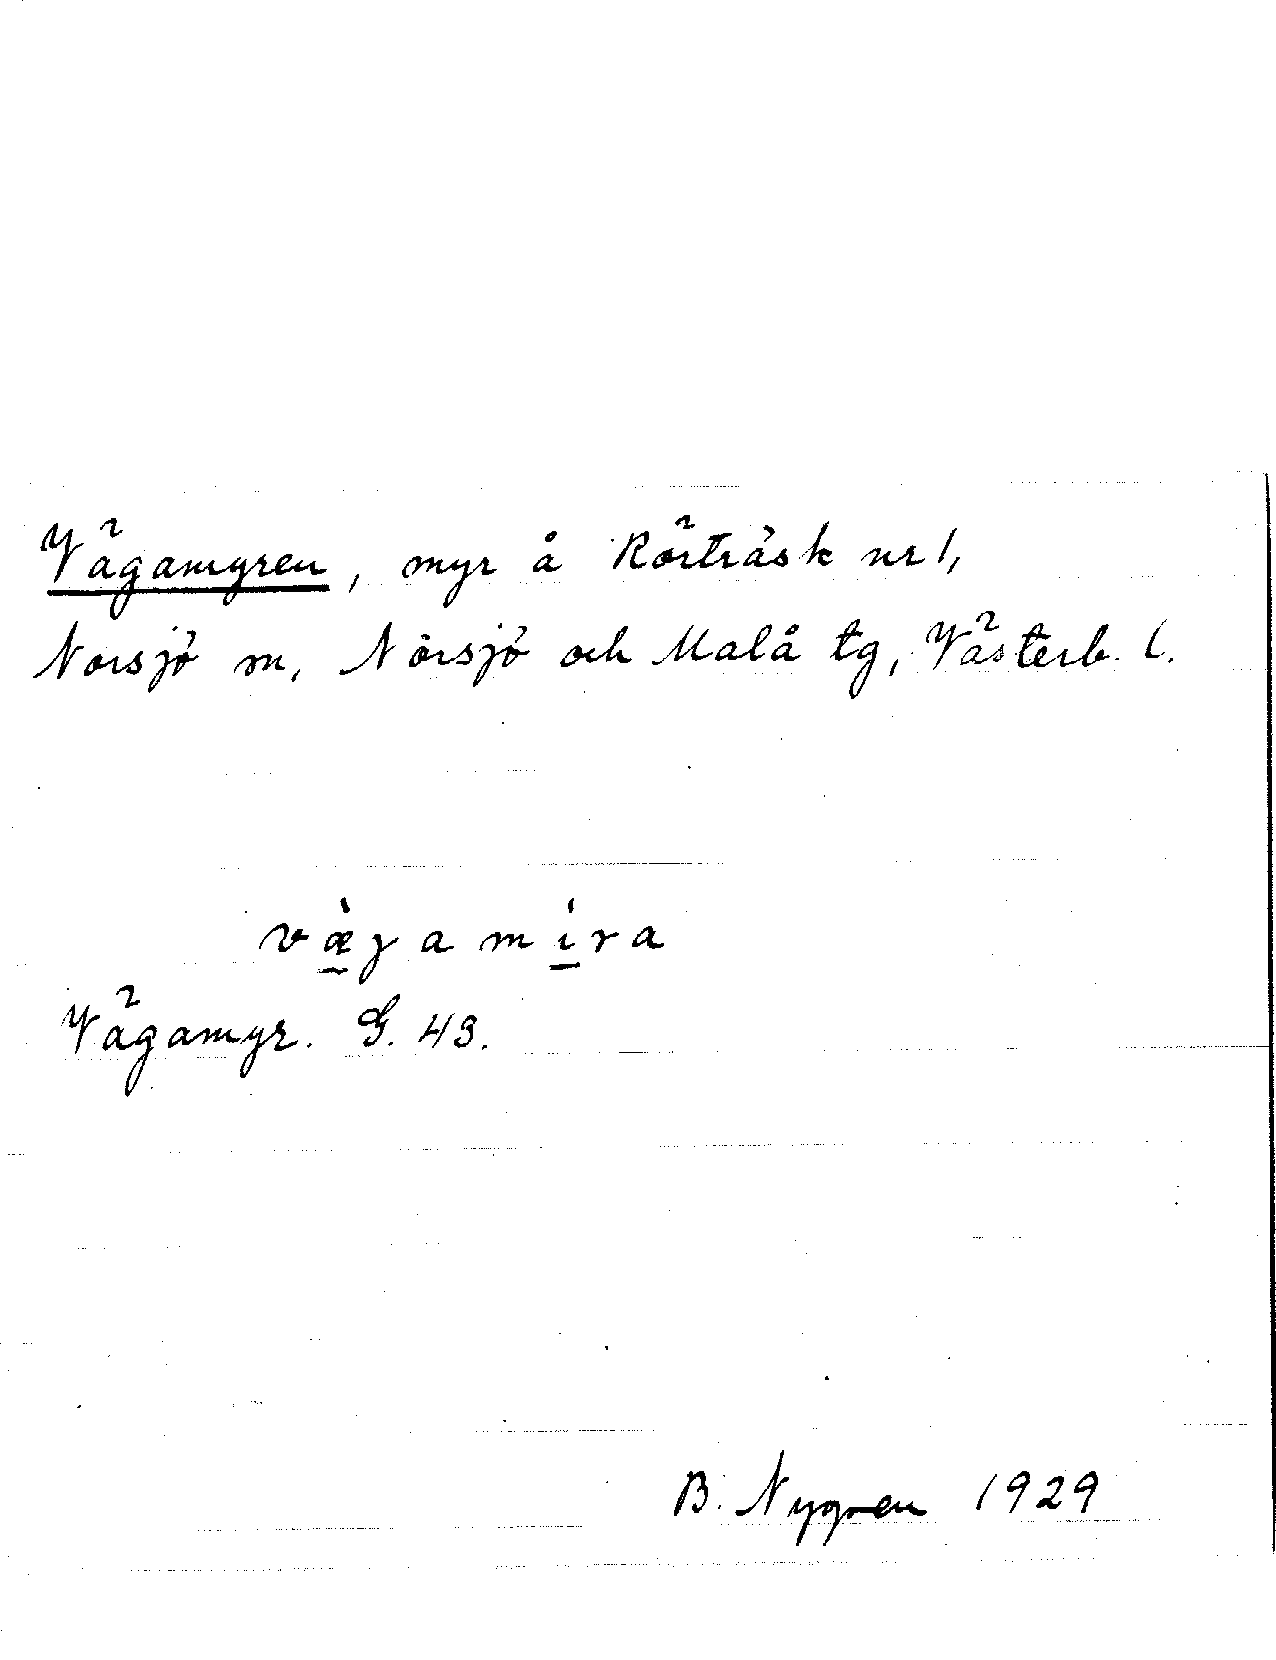 Vägamyren, myr å Rörträsk nr 1,
Norsjö sn, Norsjö och Malå tg, Västerb. l.
væ̀gamíra
Vägamyr. G. 43.
B. Nygren 1929